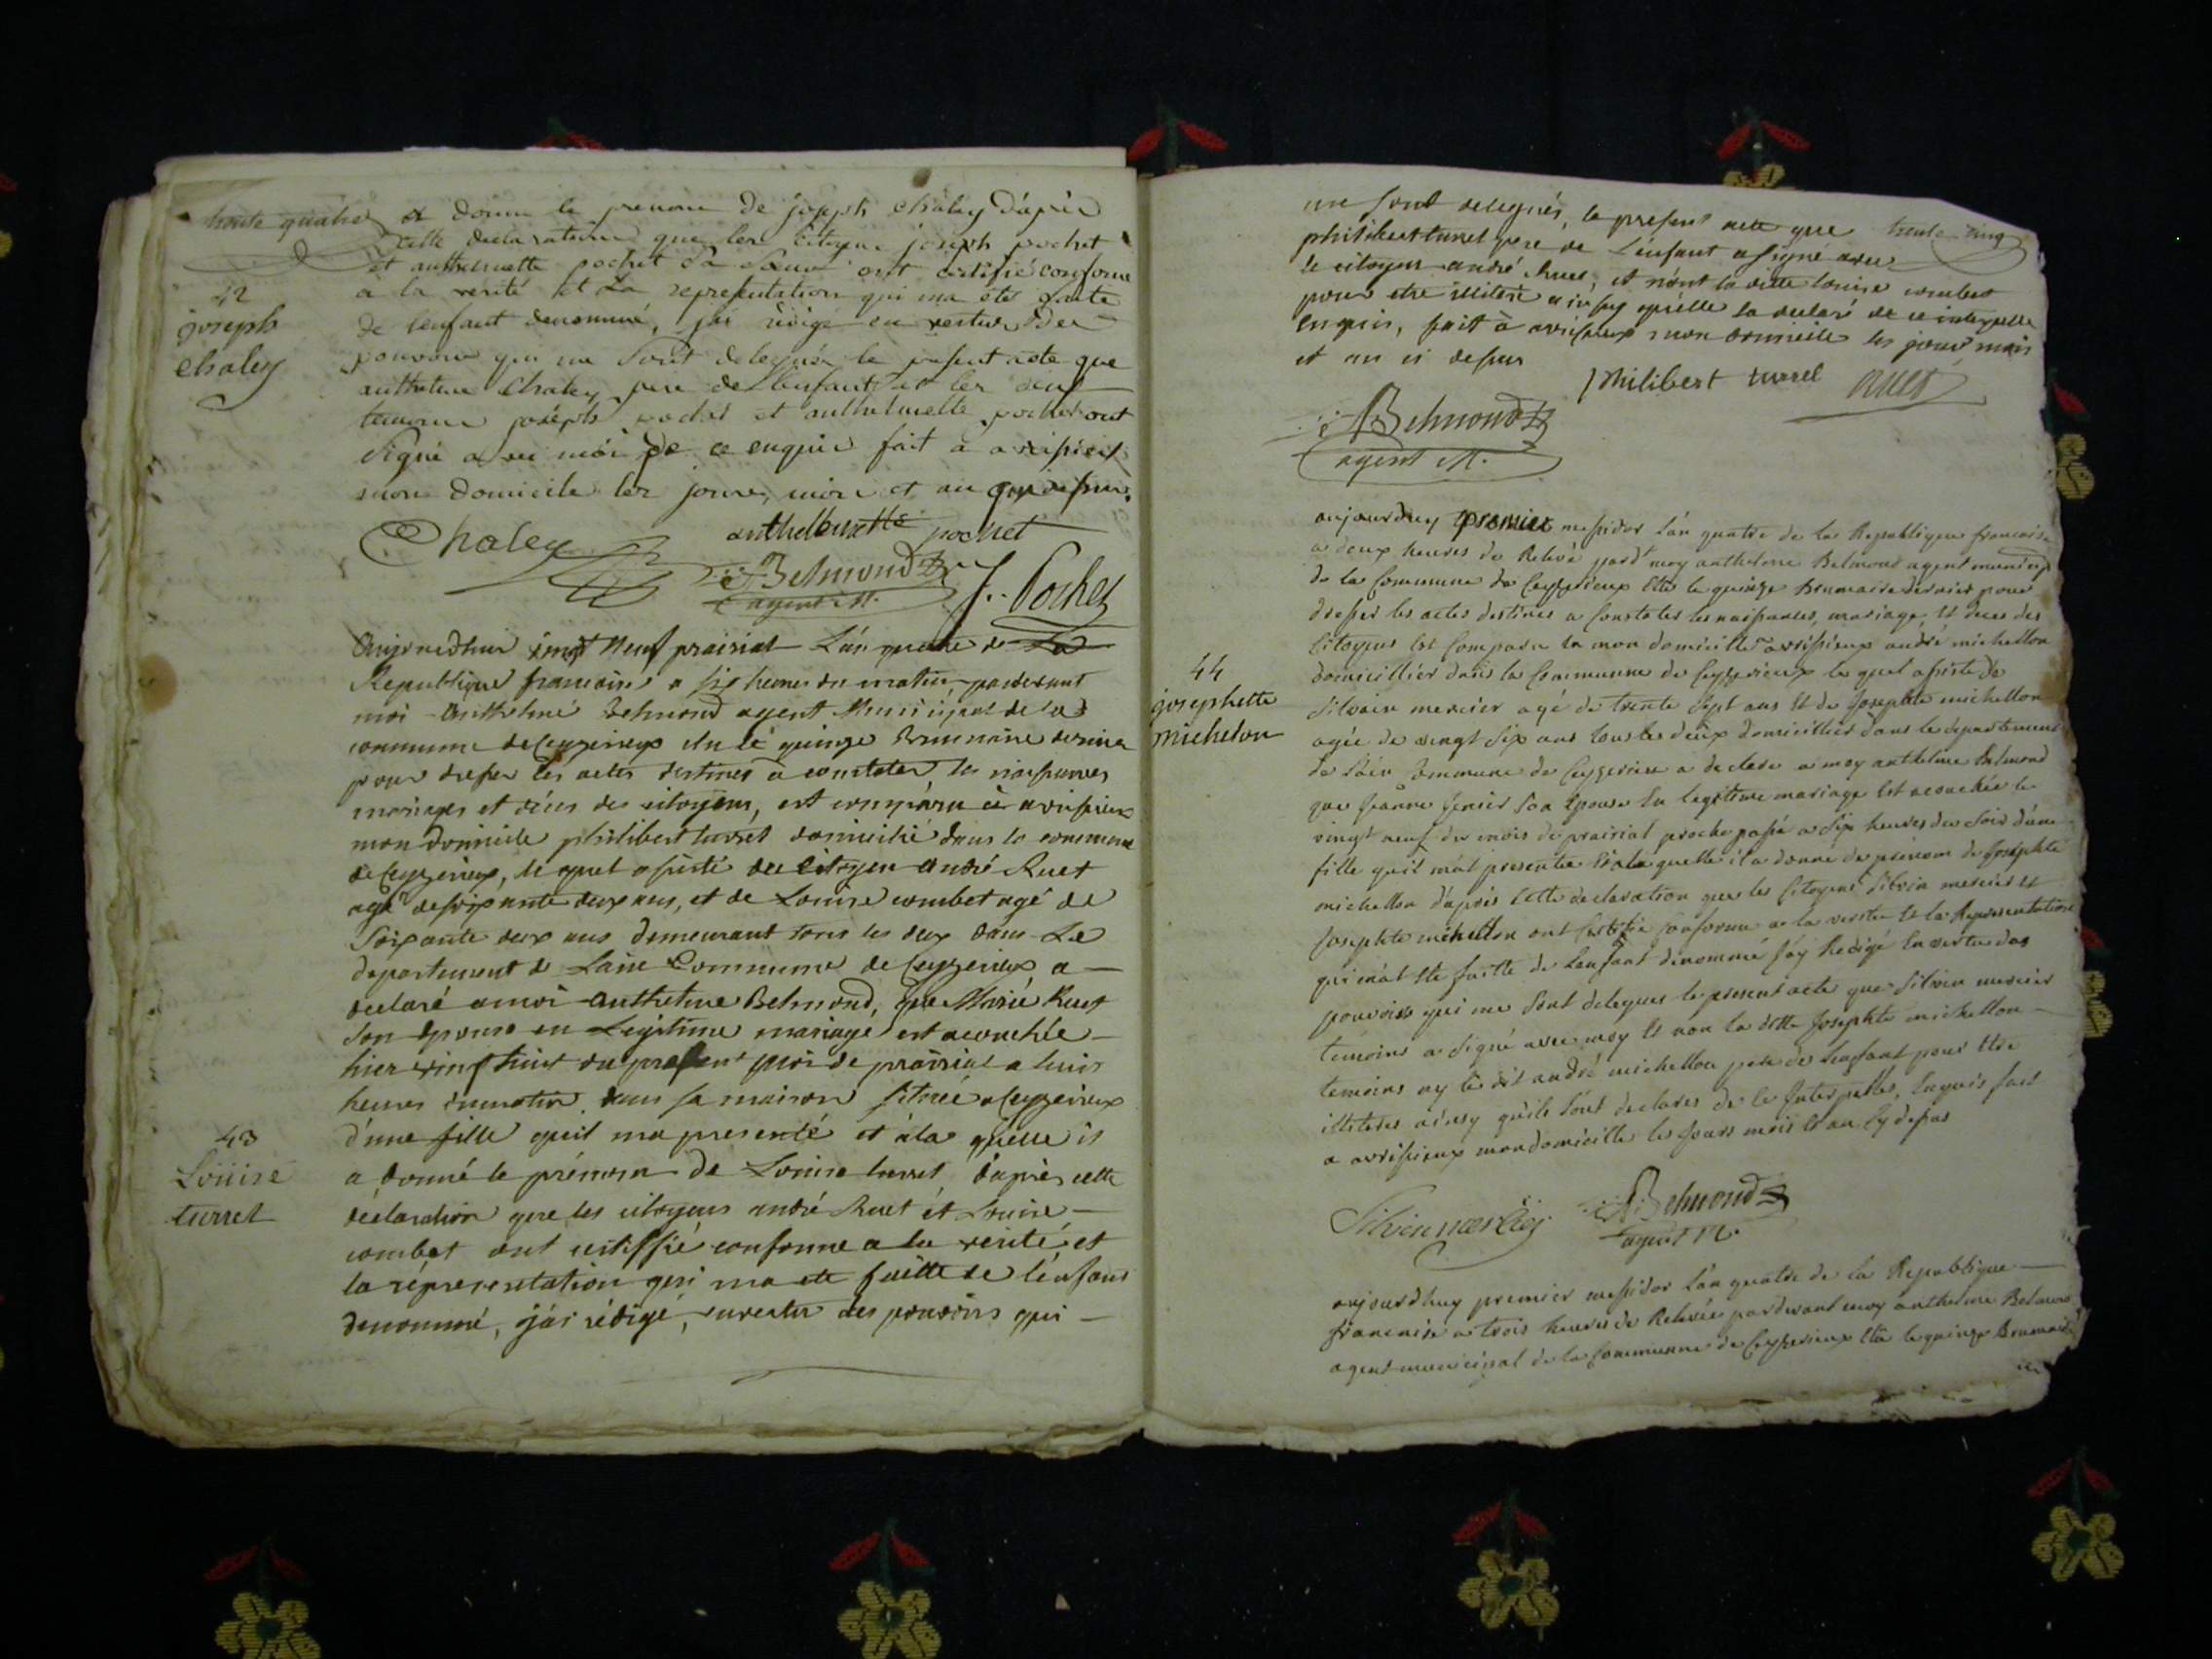 trente quatre
42
joseph
Chaley
a donné le prenom de joseph Chaley d'après
cette declaration que les citoyens joseph pochet
et anthelmette pochet Sa Sœur ont certifié conforme
a la verité et La representation qui ma été faite
de lenfant denommé, j'ai redigé en vertu des
pouvoirs qui me Sont delegués le present acte que
anthelme Chaley pere de l'enfant et les deux
temoins joseph pochet et anthelmette pochet ont
Signé avec moi de ce enquis fait à avrissieux
mon domicile les jours, mois et an que dessus.
Chaley
anthelmette pochet
A Belmond
agent M.
J. Pochet
43
Louise
turrel
Aujourdhui vingt Neuf prairial L'an quatre de La
Republique francaise a six heures du matin, pardevant
moi Anthelme Belmond agent Municipal de la
commune de Ceyzerieux élu le quinze Brumaire dernier
pour dresser les actes destinés à constater les naissances
mariages et décès des citoyens, est comparu à avrissieux
mon domicile philibert turrel domicilié dans la commune
de Ceyzerieux, le quel assisté du citoyen André Ruet
agé de soixante deux ans, et de Louise combet agé de
Soixante deux ans demeurant tous les deux dans Le
departement de Lain Commune de Ceyzerieux a
declaré a moi Anthelme Belmond, que Marie Ruet
Son epouse en Legitime mariage est acouchée
hier vingt huit du present mois de prairial a huit
heures du matin dans sa maison Située a Ceyzerieux
d'une fille quil ma presenté et à la quelle il
a donné le prénom de Louise turrel, d'après cette
déclaration que les citoyens andré Ruet et Louise
combet ont certiffié conforme a la verité et
la répresentation qui ma ete faitte de l'enfant
denommé, j'ai rédigé, en vertu des pouvoirs qui
trente cinq
me sont delegués, le present acte que
philibert turrel pere de L'enfant a signé avec
le citoyen andré Ruet, et non la ditte Louise combet
pour etre illiteré ainsy qu'elle la declaré de ce interpellé
enquis, fait à avrissieux mon domicile les jours mois
et an ci dessus
philibert turrel
Ruet
A Belmond
agent M.
44
josephette
michelon
aujourdhuy premier messidor L'an quatre de la Republique francaise
a deux heures de Relevé pard' moy anthelme Belmond agent municip
de la Commune de Ceyzerieux Elu le quinze Brumaire dernier pour
dresser les actes destines a Constater les naissances, mariage, et deces des
Citoyens Est Comparu en mon domicille a avrissieux andré michellon
domicillier dans la Commune de Ceyzerieux le quel assiste de
Silvain mercier agé de trente Sept ans et de Josephte michellon
agée de vingt Six ans tous les deux domicilliés dans le departement
de Lain Commune de Ceyzerieu a declaré a moy anthelme Belmond
que Jeanne Son Epouse En legitime mariage Est acouchée le
vingt neuf du mois de prairial proche passé a Six heures du Soir d'une
fille quil m'at presentée Et a la quelle il a donné le prénom de Josephte
michellon d'apres Cette declaration que les Citoyens Silvin mercier et
Josephte michellon ont Certifié Conforme a la verité Et la Representation
qui m'at Ete faitte de Lenfant denommé j'ay Redigé En vertu des
pouvoirs qui me Sont delegues le present acte que Silvin mercier
temoins a Signé avec moy Et non la ditte Josephte michellon
temoins ny le dit andré michellon pere de Lenfant pour Etre
illiteres ainsy quils Lont declarés de Ce Interpellés, Enquis fait
a avrissieux mon domicille les Jours mois Et an Cy dessus
Silvin mercier
A Belmond
agent M.
aujourdhuy premier messidor L'an quatre de la Republique
francaise a trois heures de Relevée pardevant moy anthelme Belmond
agent municipal de la Commune de Ceyzerieux Elu le quinze Brumaire